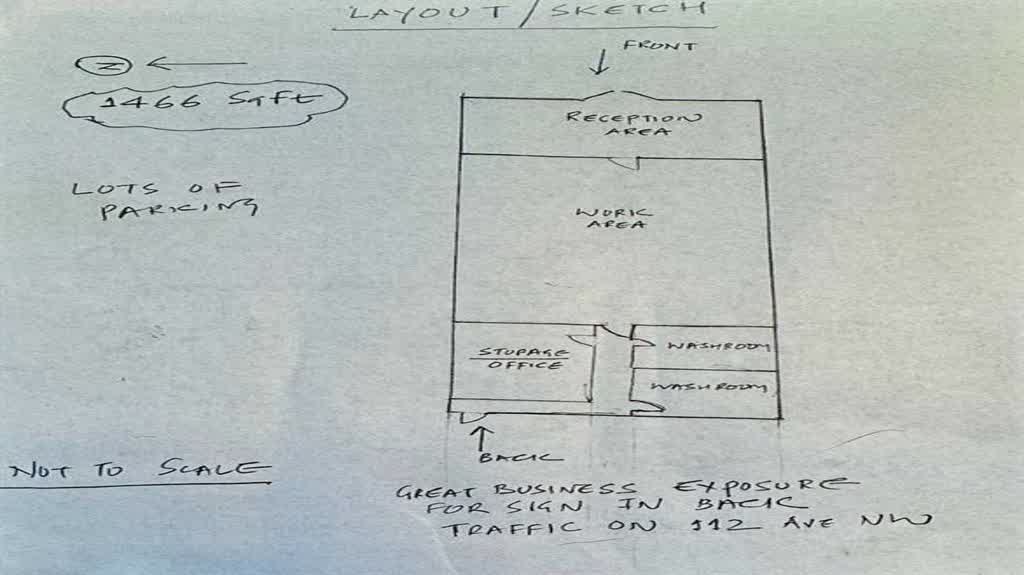 LAYOUT / SKETCH
FRONT
N
1466 SqFt
RECEPTION
AREA
LOTS OF
PARKING
WORK
AREA
STORAGE
OFFICE
WASHROOM
WASHROOM
BACK
NOT TO SCALE
GREAT BUSINESS EXPOSURE
FOR SIGN IN BACK
TRAFFIC ON 112 AVE NW